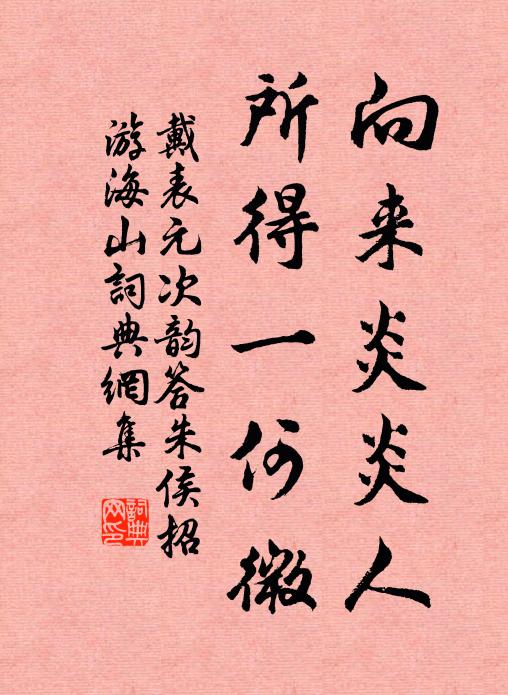 向来炎炎人
所得一何微
戴表元次韵答朱侯招
游海山詞典網集
詞典网印